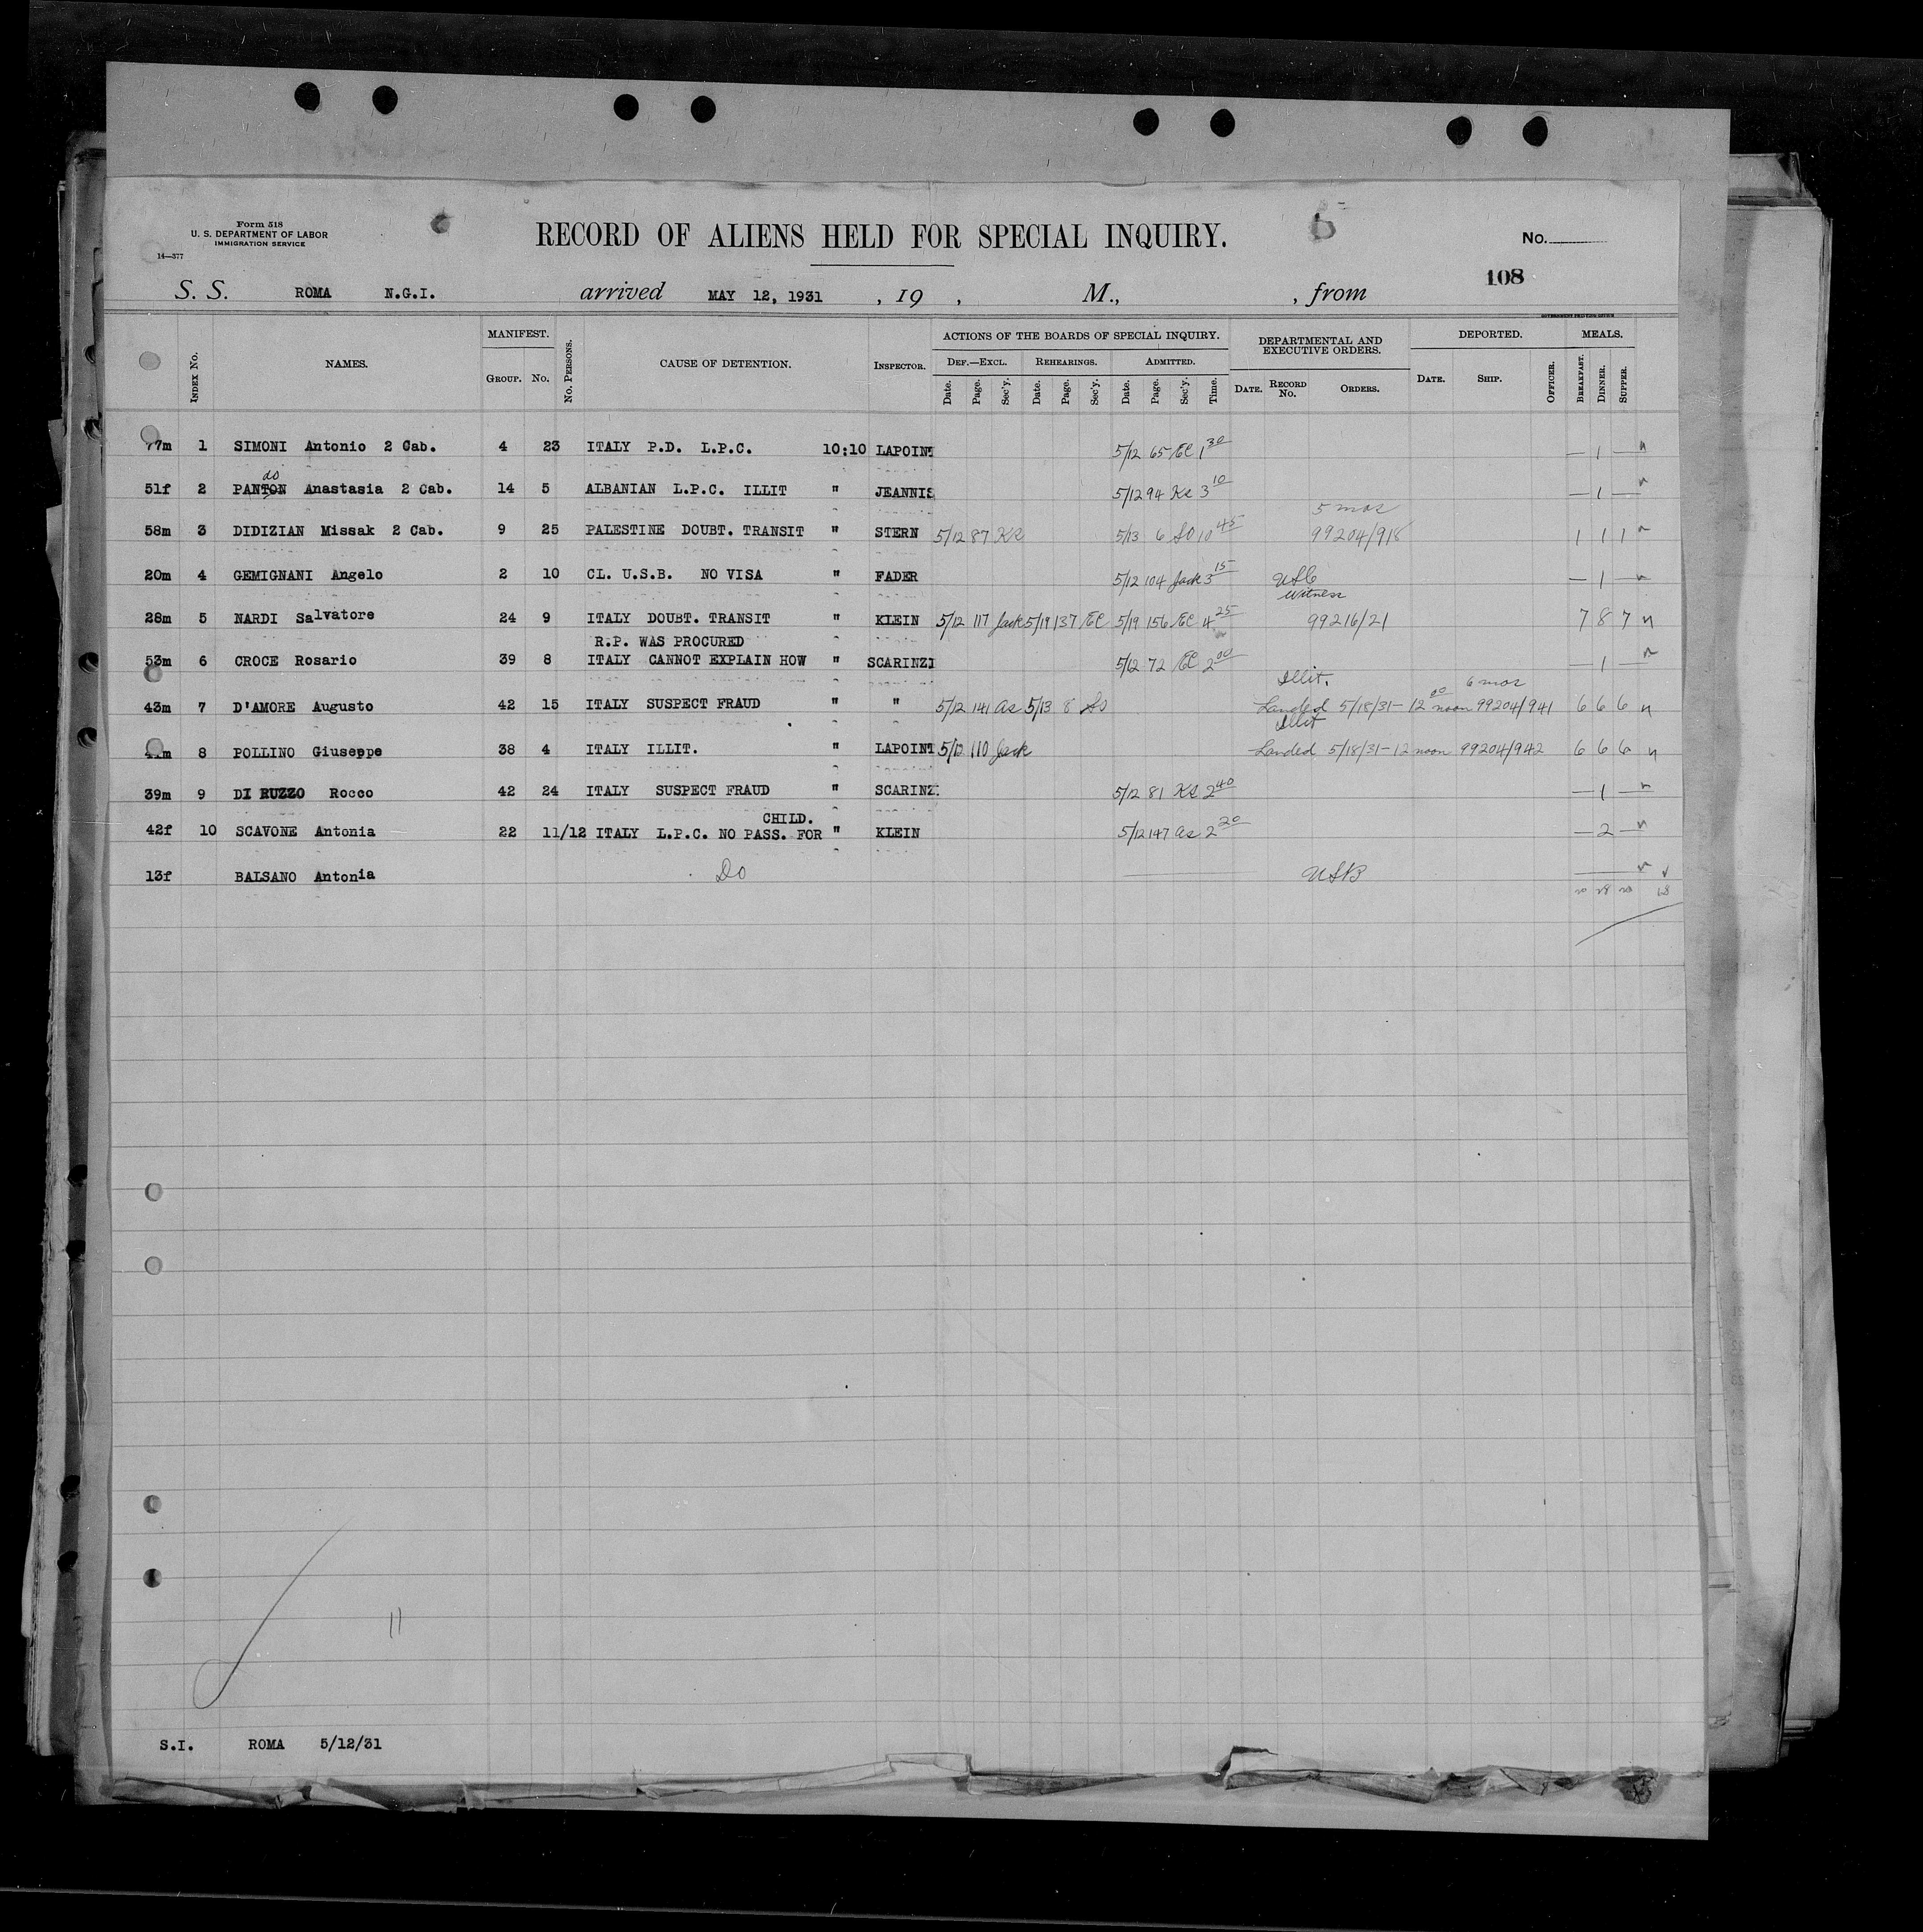 Form 518
U. S. DEPARTMENT OF LABOR
IMMIGRATION SERVICE
14—377
RECORD OF ALIENS HELD FOR SPECIAL INQUIRY.
No.
108
S. S. ROMA N.G.I. arrived MAY 12, 1931 , 19 , M., , from
INDEX No. NAMES. MANIFEST. GROUP. No. No. PERSONS. CAUSE OF DETENTION. INSPECTOR. ACTIONS OF THE BOARDS OF SPECIAL INQUIRY. DEF.—EXCL. REHEARINGS. ADMITTED. DEPARTMENTAL AND EXECUTIVE ORDERS. DEPORTED. MEALS.
Date. Page. Sec'y. Date. Page. Sec'y. Date. Page. Sec'y. Time. DATE. RECORD No. ORDERS. DATE. SHIP. OFFICER. BREAKFAST. DINNER. SUPPER.
77m 1 SIMONI Antonio 2 Cab. 4 23 ITALY P.D. L.P.C. 10:10 LAPOINT 5/12 65 EC 1 30 — 1 —
do
51f 2 PANTON Anastasia 2 Cab. 14 5 ALBANIAN L.P.C. ILLIT " JEANNIS 5/12 94 Ks 3 10 — 1 —
5 mos
58m 3 DIDIZIAN Missak 2 Cab. 9 25 PALESTINE DOUBT. TRANSIT " STERN 5/12 87 Ks 5/13 6 SO 10 45 99204/918 1 1 1
20m 4 GEMIGNANI Angelo 2 10 CL. U.S.B. NO VISA " FADER 5/12 104 Jack 3 15 USC — 1 —
Witness
28m 5 NARDI Salvatore 24 9 ITALY DOUBT. TRANSIT " KLEIN 5/12 117 Jack 5/19 137 EC 5/19 156 EC 4 25 99216/21 7 8 7
R.P. WAS PROCURED
53m 6 CROCE Rosario 39 8 ITALY CANNOT EXPLAIN HOW " SCARINZI 5/12 72 EC 2 00 — 1 —
Illit. 6 mos
43m 7 D'AMORE Augusto 42 15 ITALY SUSPECT FRAUD " " 5/12 141 as 5/13 8 SO Landed 5/18/31 - 12 00 noon 99204/941 6 6 6
Illit
8 POLLINO Giuseppe 38 4 ITALY ILLIT. " LAPOINT 5/12 110 Jack Landed 5/18/31 - 12 noon 99204/942 6 6 6
39m 9 DI RUZZO Rocco 42 24 ITALY SUSPECT FRAUD " SCARINZI 5/12 81 Ks 2 40 — 1 —
CHILD.
42f 10 SCAVONE Antonia 22 11/12 ITALY L.P.C. NO PASS. FOR " KLEIN 5/12 147 as 2 20 — 2 —
13f BALSANO Antonia Do USB
20 28 20 68
11
S.I. ROMA 5/12/31